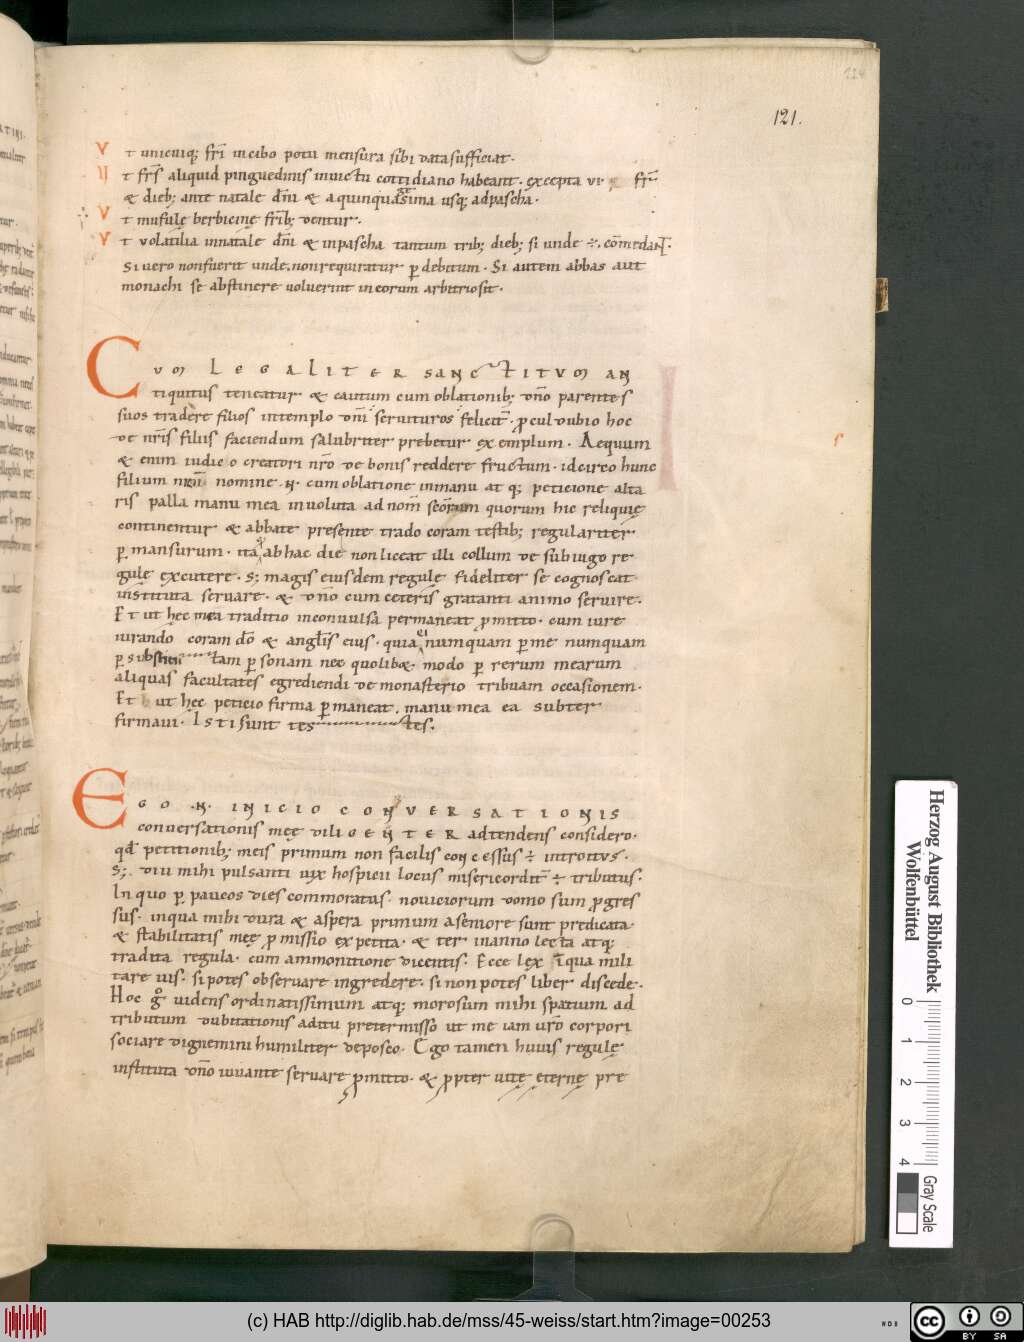 121.
Vt unicuiq; frī in cibo potu mensura sibi data sufficiat.
Vt frs̄ aliquid pinguedinis in victu cottidiano habeant. excepta vi fr̄
& dieb; ante natale dn̄i & a quinquagesima usq; ad pascha.
Vt mufulę berbicinę frīb; dentur.
Vt volatilia in natale dn̄i & in pascha tantum trib; dieb; si unde ÷. cōmedant.
Si vero non fuerit unde. non requiratur p̱ debitum. Si autem abbas aut
monachi se abstinere voluerint in eorum arbitrio sit.
Cum legaliter sanctitum an
tiquitus teneatur & cautum cum oblationib; dn̄o parentes
suos tradere filios in templo dn̄i servituros feliciť. procul dubio hoc
de nr̄is filiis faciendum salubriter prebetur exemplum. Aequum
& enim iudico creatori nr̄o de bonis reddere fructum. idcirco hunc
filium nr̄m nomine .N. cum oblatione in manu atq; peticione alta
ris palla manu mea involuta ad nom̄ sc̄orum quorum hic reliquię
continentur & abbate presente trado coram testib; regulariter
p̱mansurum. ita ab hac die non liceat illi collum de sub iugo re
gulę excutere. S; magis eiusdem regulę fideliter se cognoscat
instituta servare. & dn̄o cum ceteris gratanti animo servire.
Et ut hęc mea traditio inconvulsa permaneat promitto. cum iure
iurando coram dō & angl̄is eius. quia numquam per me numquam
p̱ subpositam p̱sonam nec quolib&. modo p̱ rerum mearum
aliquas facultates egrediendi de monasterio tribuam occasionem.
Et ut hęc peticio firma p̱maneat. manu mea ea subter
firmavi. Isti sunt testes.
Ego .N. inicio conversationis
conversationis meę diligenter adtendens considero.
qđ petitionib; meis primum non facilis concessus ÷ introitus.
S; diu mihi pulsanti vix hospicii locus misericordit̄ ÷ tributus.
In quo p̱ paucos dies commoratus. noviciorum domo sum progres
sus. in qua mihi dura & aspera primum a seniore sunt predicata.
& stabilitatis meę promissio expetita. & ter in anno lecta atq;
tradita regula. cum ammonitione dicentis. Ecce lex in qua mili
tare vis. si potes observare ingredere. si non potes liber discede.
Hoc gͦ videns ordinatissimum atq; morosum mihi spatium ad
tributum dubitationis aditu pretermisso ut me iam vr̄o corpori
sociare dignemini humiliter deposco. Ego tamen huius regulę
instituta dn̄o iuvante servare promitto. & propter vitę eternę pre
Herzog August Bibliothek
Wolfenbüttel
0 1 2 3 4
Gray Scale
(c) HAB http://diglib.hab.de/mss/45-weiss/start.htm?image=00253
cc BY SA